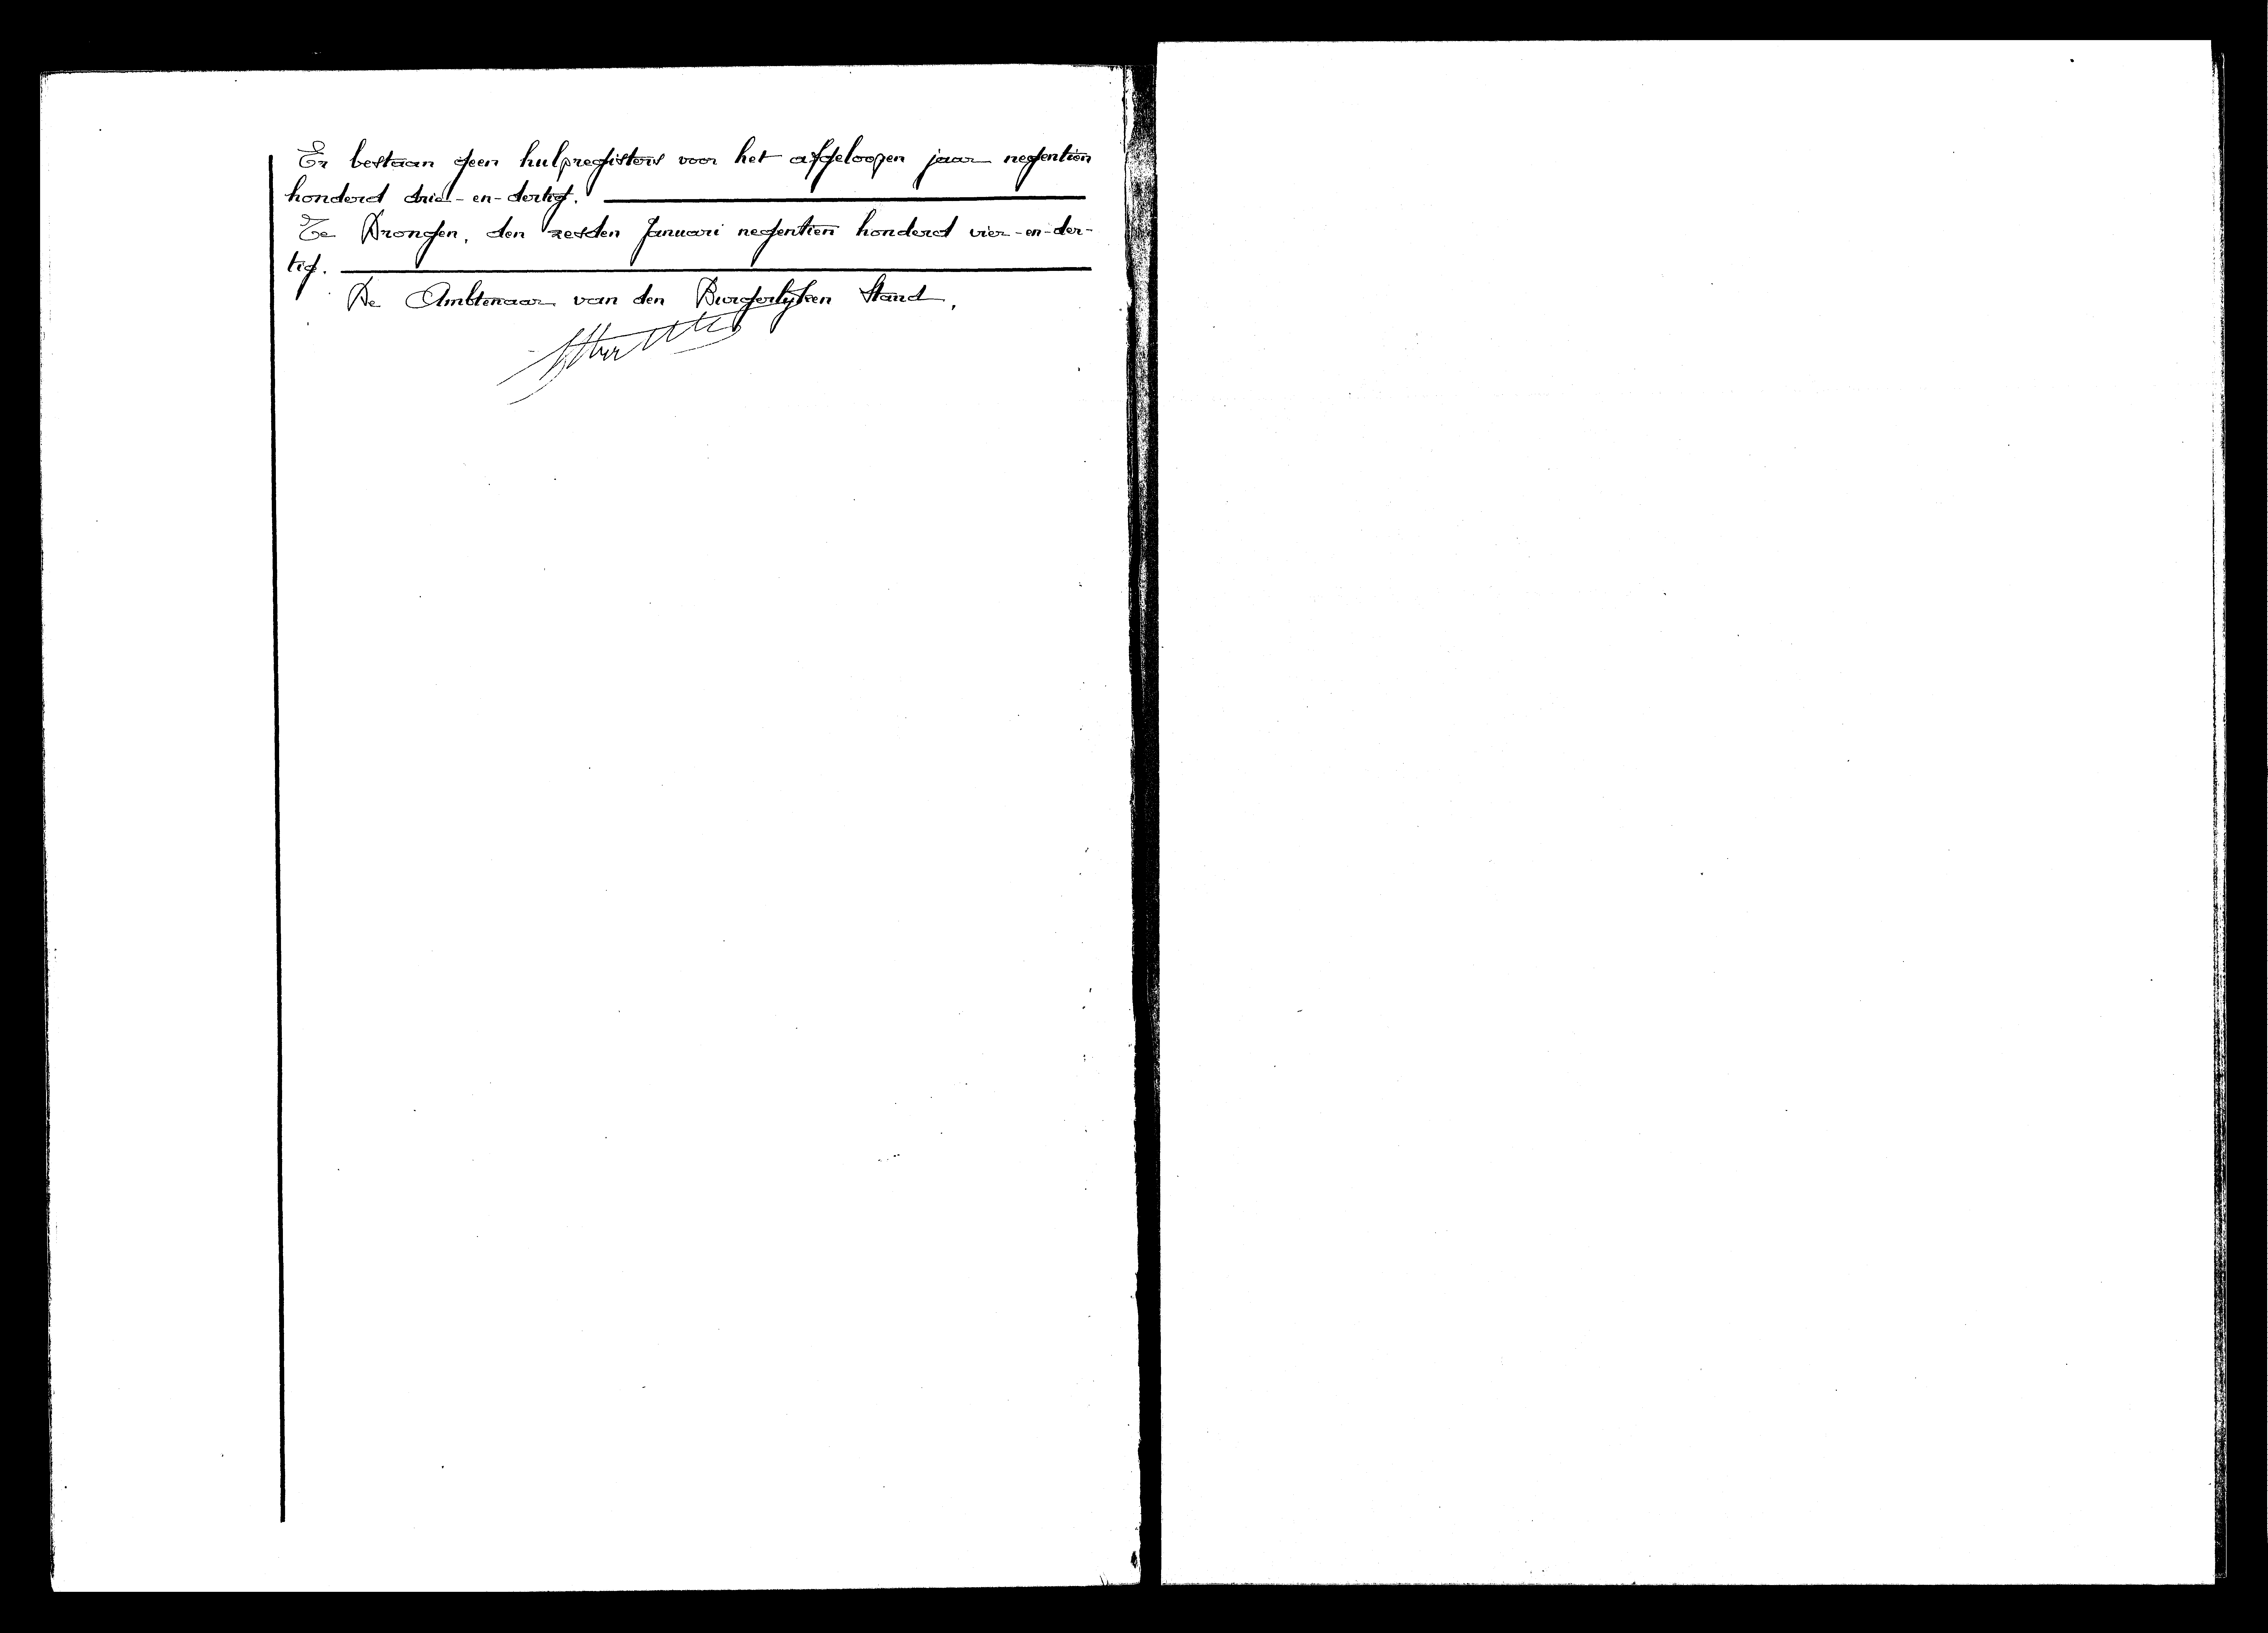 Er bestaan geen hulpregisters voor het afgeloopen jaar negentien
honderd drie-en-dertig.
Te Drongen, den zesden Januari negentien honderd vier-en-der-
tig.
De Ambtenaar van den Burgerlyken Stand,